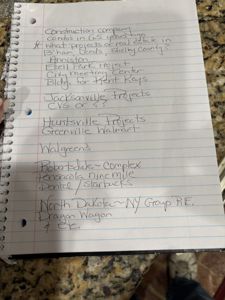 Construction company
* What projects or real estate in
B'ham, Leeds, Shelby County
Anniston
Bell Park Project
City Meeting Center
Bldg. for

Jacksonville Projects
CVS or

Huntsville Projects
Greenville Walmart

Walgreens

Robertsdale ~ Complex
Pensacola Nine Mile
Dental / Starbucks

North Dakota ~ NY Group R.E.
Dragon Wagon